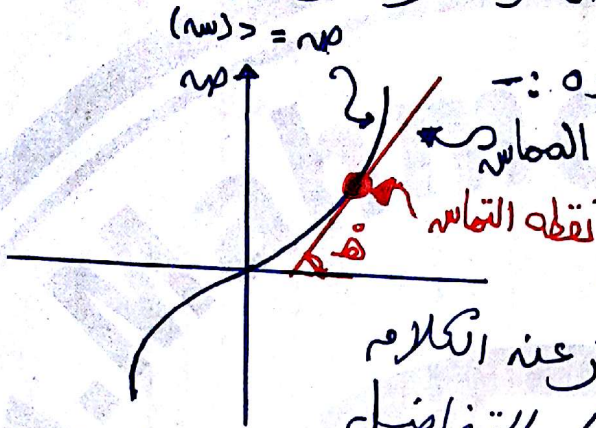 ص = د(س)
ص
ه :-
المماس
نقطه التماس
هـ°
عنه الكلام
التفاضل